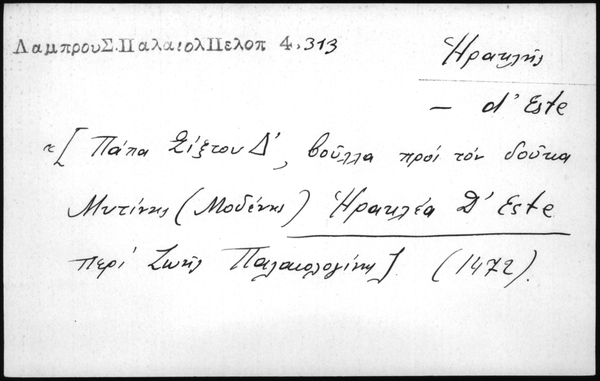 ΛαμπρουΣ.ΠαλαιολΠελοπ 4,313
Ἡρακλῆς
— d'Este
"[Πάπα Σίξτου Δ', βοῦλλα πρὸς τὸν δοῦκα
Μυτίνης (Μοδένης) Ἡρακλέα D'Este
περὶ Ζωῆς Παλαιολογίνης]. (1472).